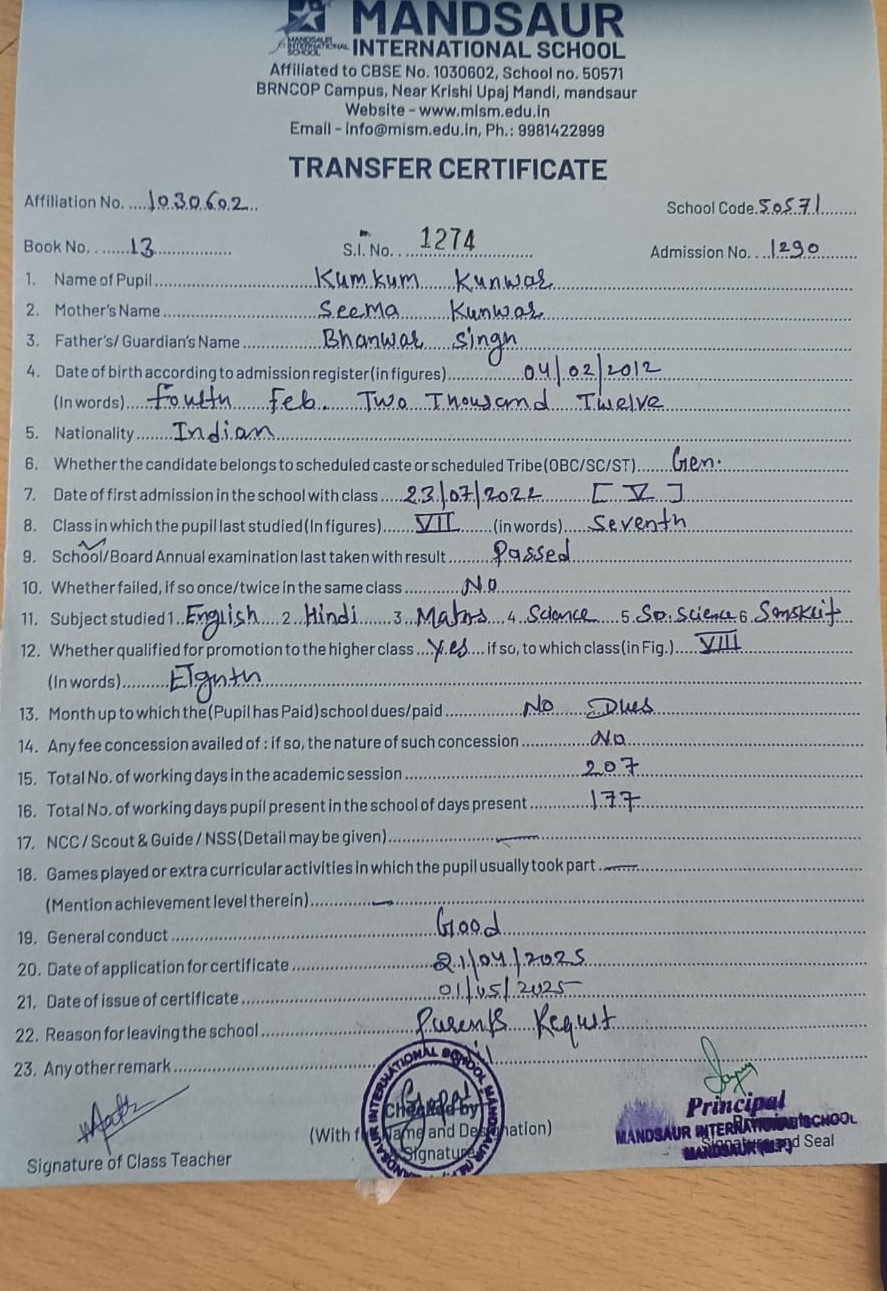 MANDSAUR
MANDSAUR INTERNATIONAL SCHOOL
INTERNATIONAL SCHOOL
Affiliated to CBSE No. 1030602, School no. 50571
BRNCOP Campus, Near Krishi Upaj Mandi, mandsaur
Website - www.mism.edu.in
Email - info@mism.edu.in, Ph.: 9981422999
TRANSFER CERTIFICATE
Affiliation No. ....1030602... School Code.50571.......
Book No. .......13................ S.I. No. . .1274............. Admission No. ...1290.......
1. Name of Pupil ............ Kumkum Kunwar
2. Mother's Name ............ Seema Kunwar
3. Father's/ Guardian's Name ............ Bhanwar Singh
4. Date of birth according to admission register (in figures) ............ 04/02/2012
(In words) ..... Fourth Feb. Two Thousand Twelve
5. Nationality ....... Indian
6. Whether the candidate belongs to scheduled caste or scheduled Tribe (OBC/SC/ST) ...... Gen.
7. Date of first admission in the school with class .... 23/07/2022 [V]
8. Class in which the pupil last studied (In figures) ...... VII ..... (in words) .... Seventh
9. School/Board Annual examination last taken with result ..... Passed
10. Whether failed, if so once/twice in the same class ........... No
11. Subject studied 1..English.... 2..Hindi...... 3..Maths... 4..Science.... 5.So.Science 6.Sanskrit
12. Whether qualified for promotion to the higher class ...yes.... if so, to which class (in Fig.) .... VIII
(In words) ......... Eighth
13. Month up to which the (Pupil has Paid) school dues/paid ............ No Dues
14. Any fee concession availed of : if so, the nature of such concession ............ No
15. Total No. of working days in the academic session ............ 207
16. Total No. of working days pupil present in the school of days present ........... 177
17. NCC / Scout & Guide / NSS (Detail may be given) ............ —
18. Games played or extra curricular activities in which the pupil usually took part ... —
(Mention achievement level therein) ............ —
19. General conduct ............ Good
20. Date of application for certificate ............ 21/04/2025
21. Date of issue of certificate ............ 01/05/2025
22. Reason for leaving the school ............ Parents Request
23. Any other remark ............
INTERNATIONAL SCHOOL MANDSAUR
Checked by
Principal
(With Name and Designation)
MANDSAUR INTERNATIONAL SCHOOL
MANDSAUR (M.P.)
Signature of Class Teacher
Signature
Signature and Seal